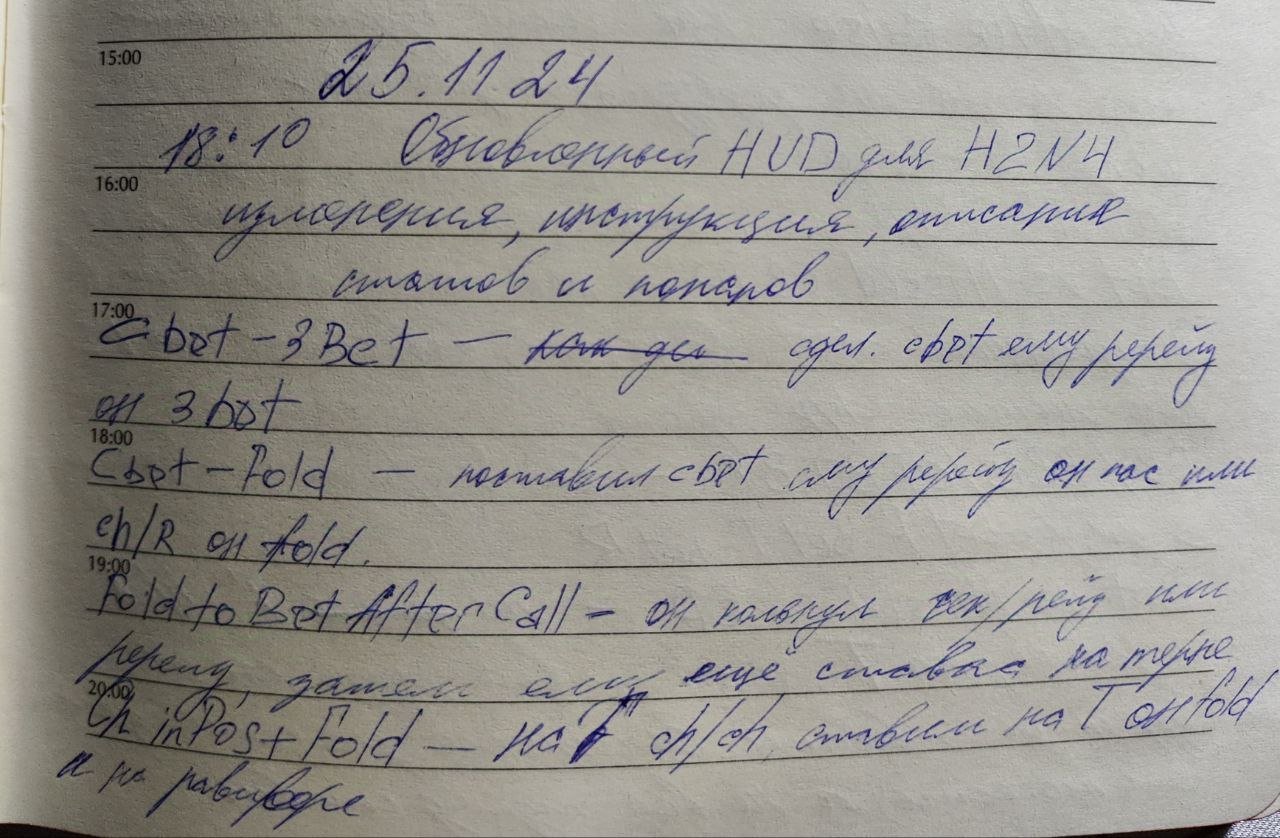 15:00
25.11.24
18:10 Обновленный HUD для H2N4
16:00
измерения, инструкция, описание
статов и попапов
17:00
Cbet - 3Bet — сдел. cbet ему ререйз
он 3bet
18:00
Cbet - Fold — поставил cbet ему ререйз он пас или
ch/R он fold.
19:00
Fold to Bet After Call - он кольнул чек/рейз или
ререйз, затем ему ещё ставка на терне
20:00
Ch in Pos + Fold — на F ch/ch, ставим на T он fold
и на ривере